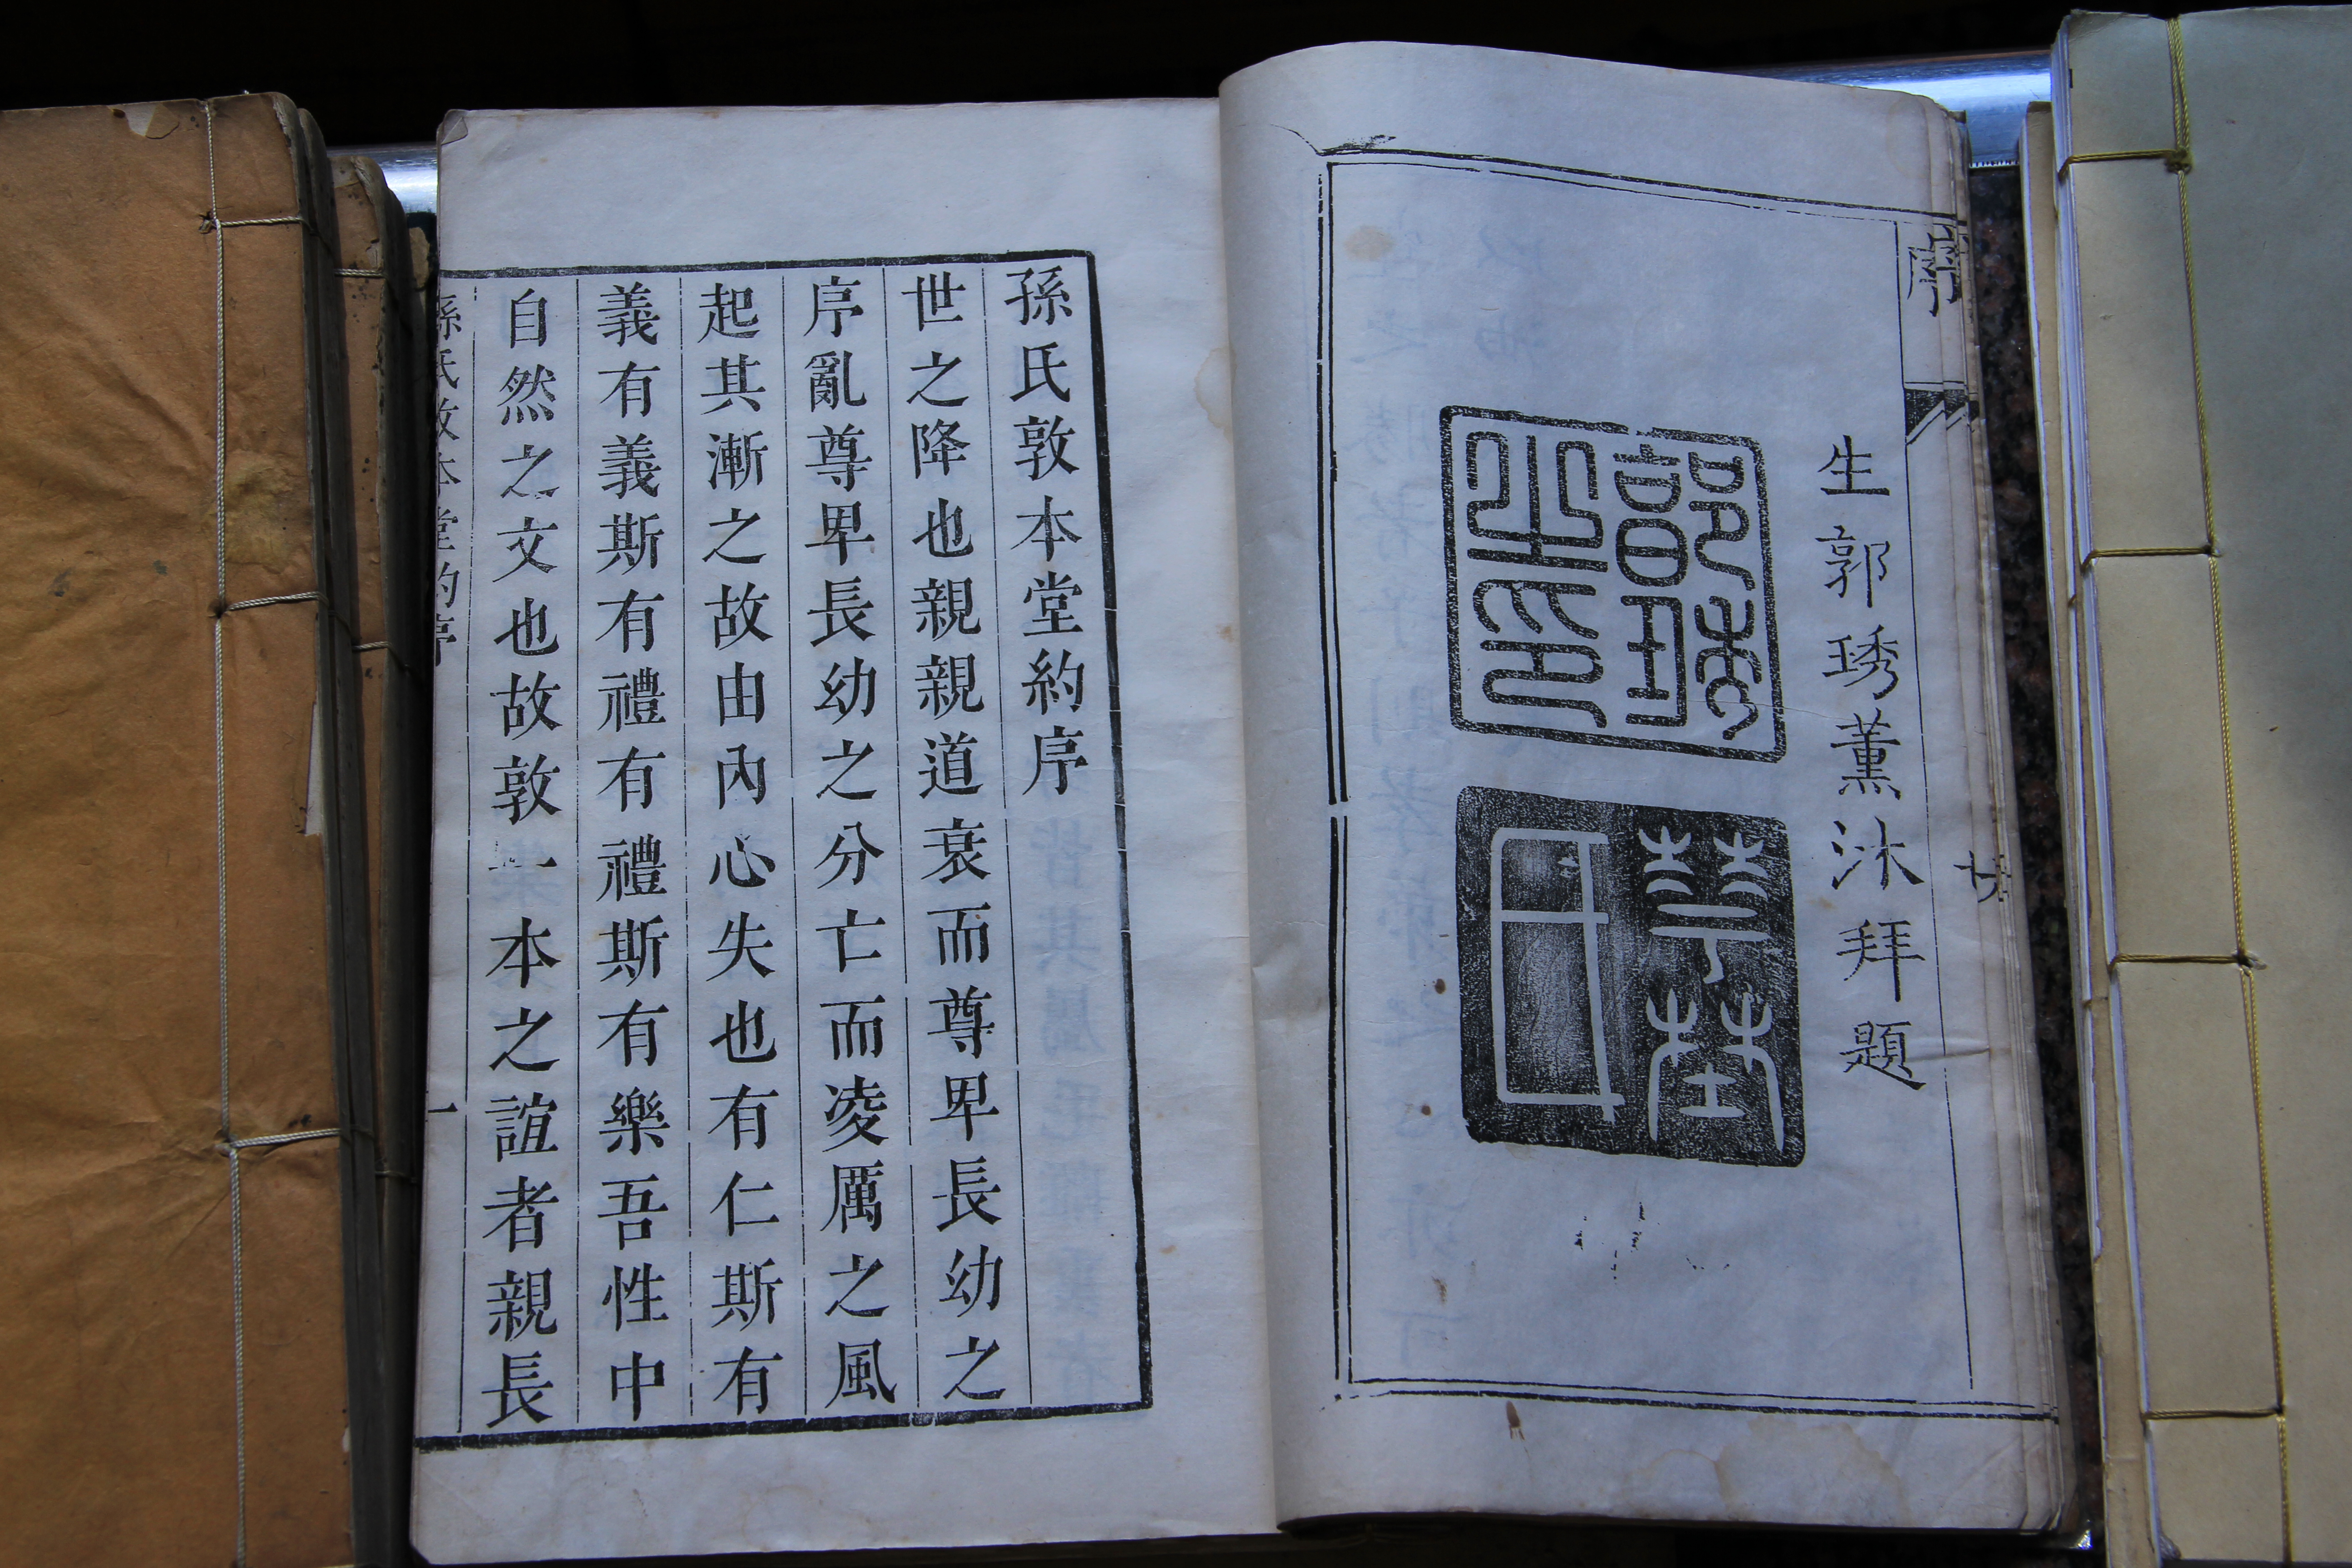 序
廿
生郭琇薰沐拜題
郭琇之印
華埜
孫氏敦本堂約序
世之降也親親道衰而尊卑長幼之
序亂尊卑長幼之分亡而凌厲之風
起其漸之故由內心失也有仁斯有
義有義斯有禮有禮斯有樂吾性中
自然之文也故敦一本之誼者親長
孫氏敦本堂約序
一